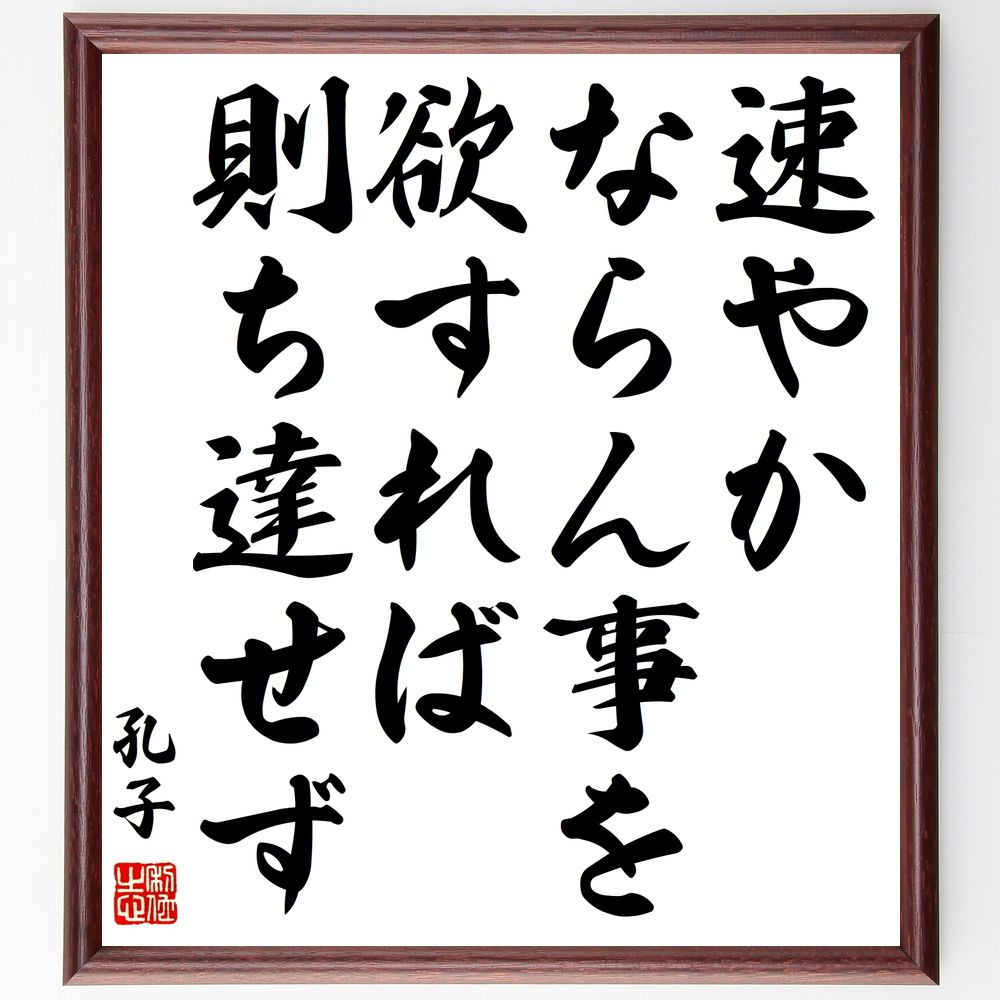 速やか
ならん事を
欲すれば
則ち達せず
孔子